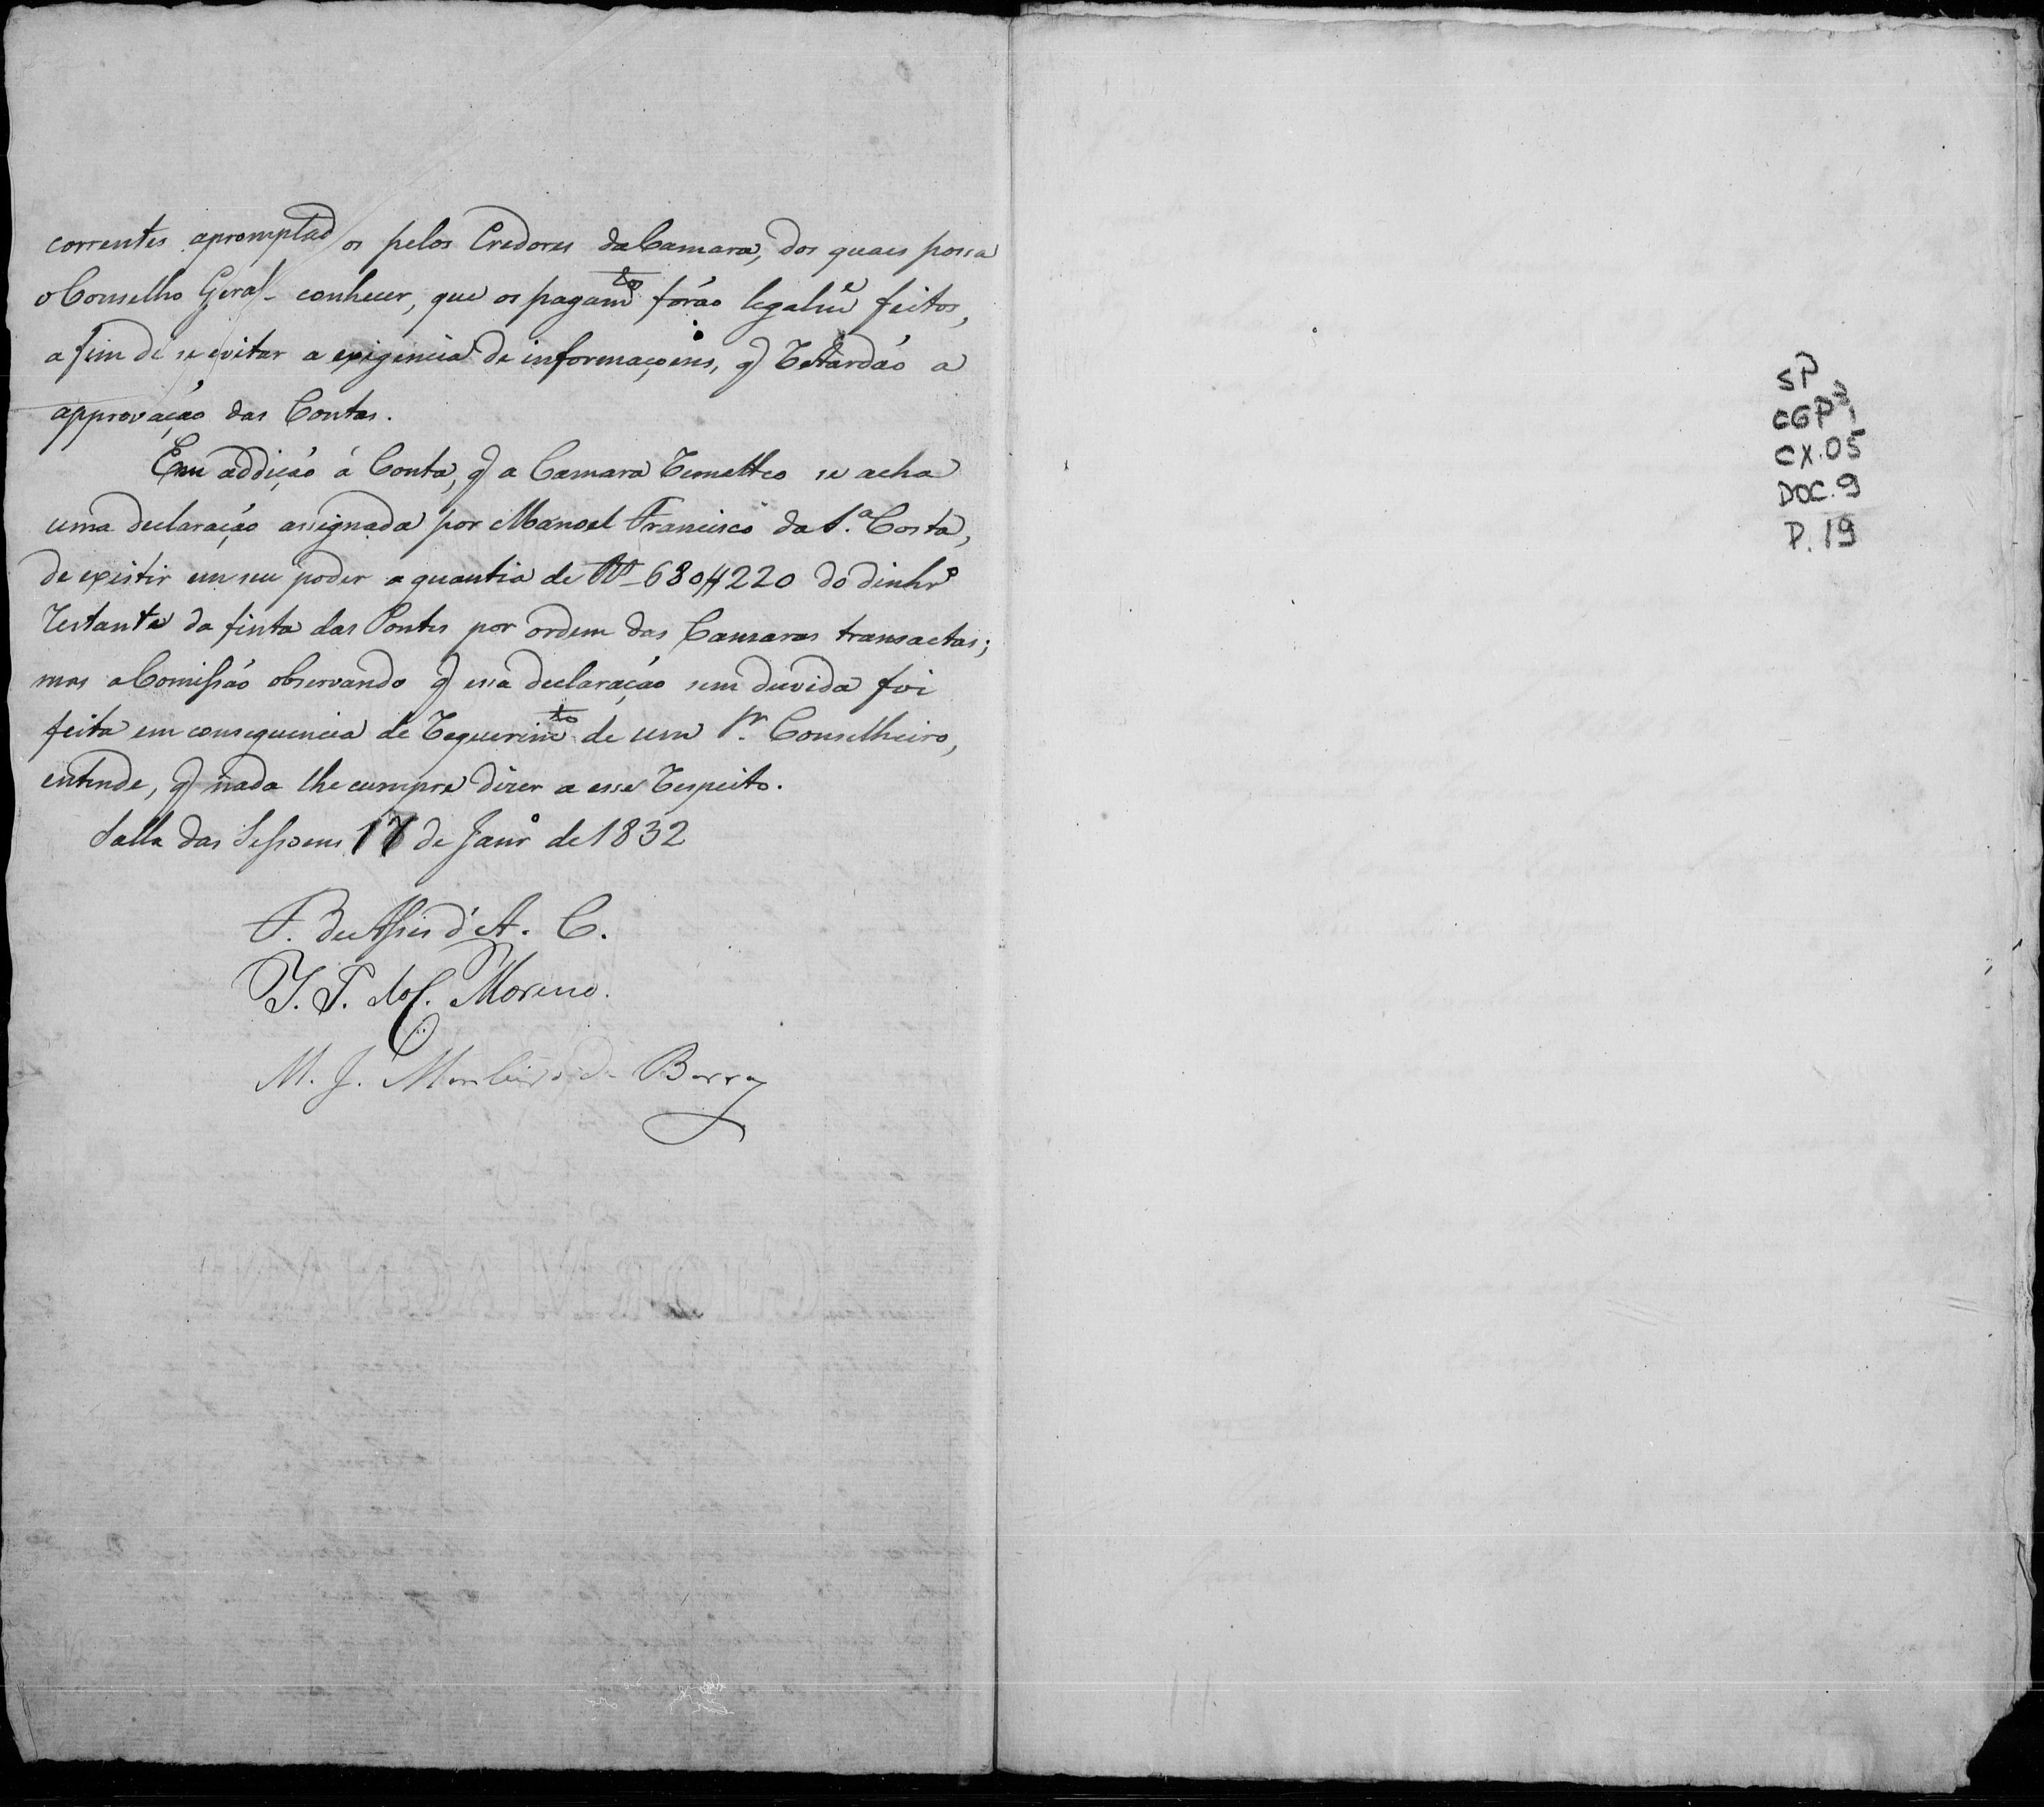 correntes apromptados pelos Credores da Camara, dos quaes possa
o Conselho Geral conhecer, que os pagam.to forão legalm.e feitos,
a fim de se evitar a exigencia de informaçoens, q̃ retardão a
approvação das Contas.
Em addição á Conta, q̃ a Camara remetteo se acha
uma declaração assignada por Manoel Francisco da S.a Costa,
de existir em seu poder a quantia de Rs 680#220 do dinhr.o
restante da finta das Pontes por ordem das Camaras transactas;
mas a Comissão observando q̃ essa declaração sem duvida foi
feita em consequencia de requerim.to de um Sr. Conselheiro,
entende, q̃ nada lhe cumpre dizer a esse respeito.
Salla das Sessoens 17 de Janr.o de 1832
d'A. C.
Moreno.
M. J. Monteiro de Barros
SP
CGP3
CX.05
DOC.9
P.19